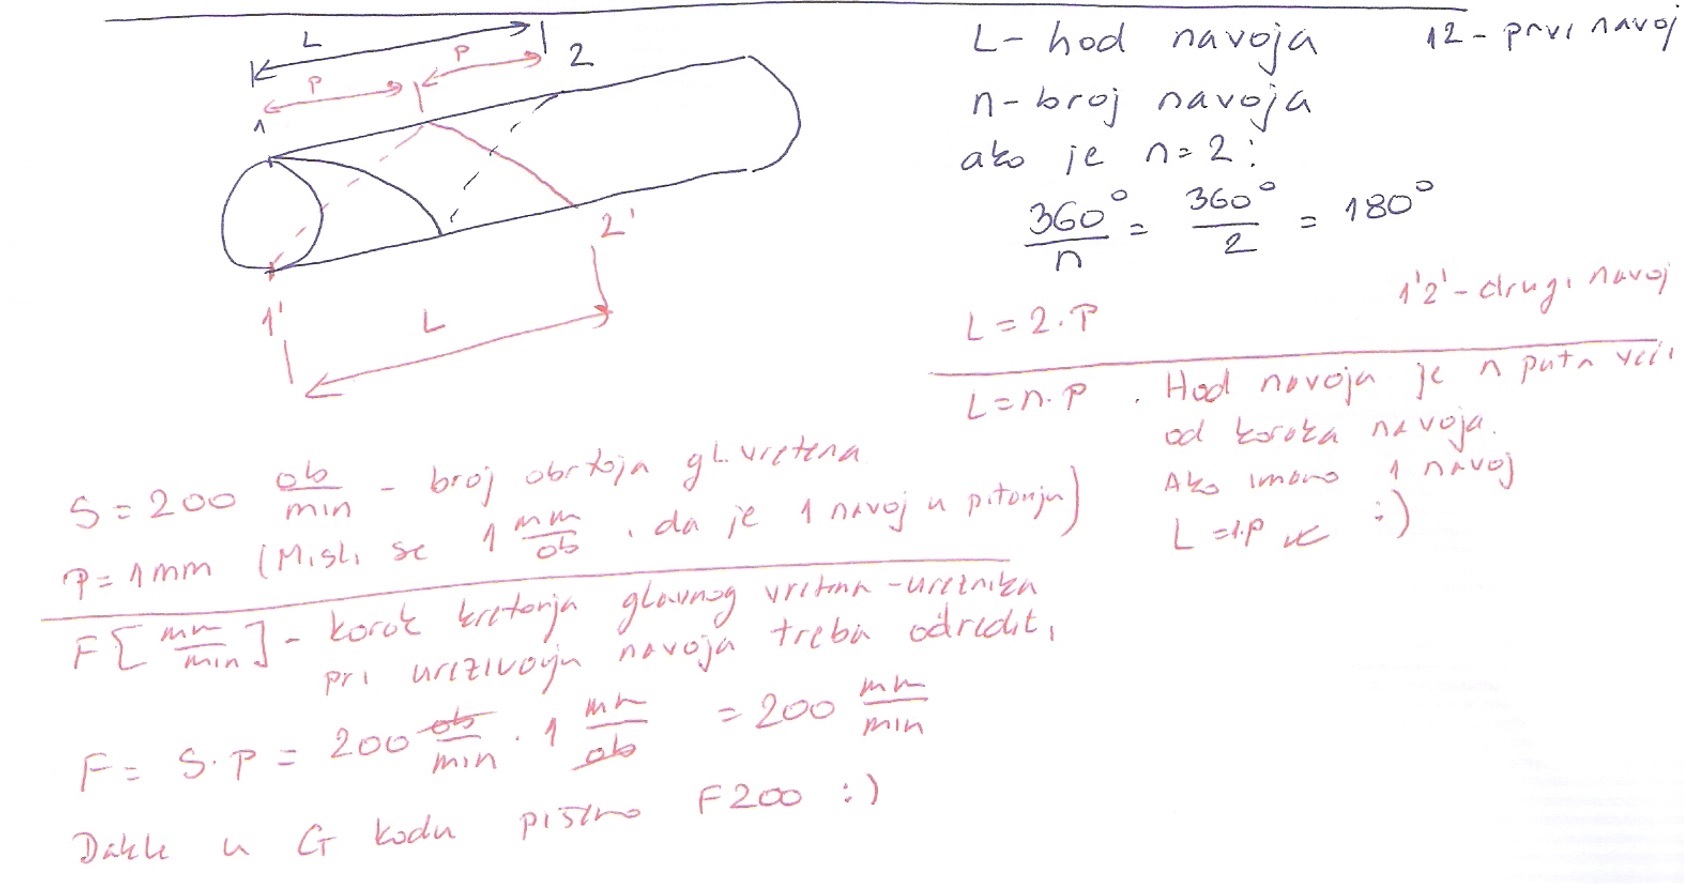 L
P
P
1
2
1'
2'
L
L - hod navoja
12 - prvi navoj
n - broj navoja
ako je n = 2:
360°/n = 360°/2 = 180°
1'2' - drugi navoj
L = 2·P
L = n·P . Hod navoja je n puta veći
od koraka navoja.
Ako imamo 1 navoj
L = 1·P :)
S = 200 ob/min - broj obrtaja gl. vretena
P = 1mm (Misli se 1 mm/ob , da je 1 navoj u pitanju)
F [mm/min] - korak kretanja glavnog vretena - ureznika
pri urezivanju navoja treba odrediti
F = S·P = 200 ob/min · 1 mm/ob = 200 mm/min
Dakle u G kodu pišemo F200 :)